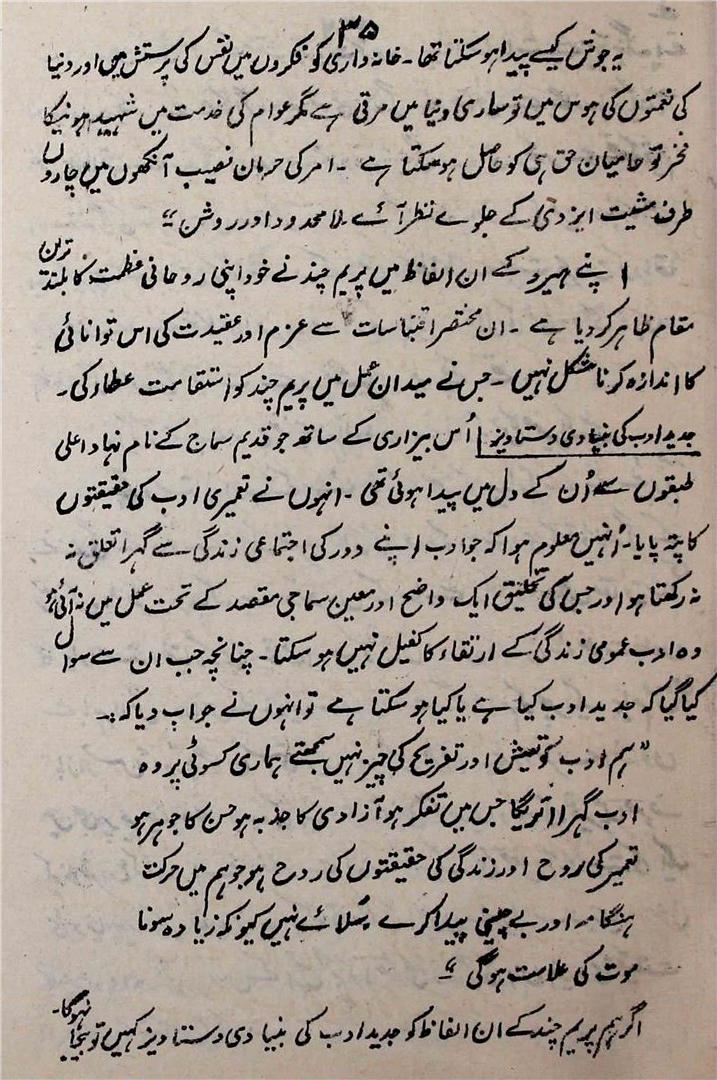 ۳۵
یہ جوش کیسے پیدا ہو سکتا تھا۔ خانہ داری کو فکروں میں نفس کی پرستش میں اور دنیا
کی نعمتوں کی ہوس میں تو ساری دنیا میں مرتی ہے مگر عوام کی خدمت میں شہید ہونیکا
فخر تو حامیان حق ہی کو حاصل ہو سکتا ہے ۔ امر کی حرمان نصیب آنکھوں میں چاروں
طرف مشیت ایزدی کے جلوے نظر آئے لا محدود اور روشن “
اپنے ہیرو کے ان الفاظ میں پریم چند نے خود اپنی روحانی عظمت کا بلند ترین
مقام ظاہر کر دیا ہے ۔ ان مختصر اقتباسات سے عزم اور عقیدت کی اس توانائی
کا اندازہ کرنا مشکل نہیں ۔ جس نے میدان عمل میں پریم چند کو استقامت عطاء کی ۔
جدید ادب کی بنیادی دستاویز | اُس بیزاری کے ساتھ جو قدیم سماج کے نام نہاد اعلی
طبقوں سے اُن کے دل میں پیدا ہوئی تھی ۔ انہوں نے تعمیری ادب کی حقیقتوں
کا پتہ پایا ۔ اُنہیں معلوم ہوا کہ جو ادب اپنے دور کی اجتماعی زندگی سے گہرا تعلق نہ
نہ رکھتا ہو اور جس کی تخلیق ایک واضح اور معین سماجی مقصد کے تحت عمل میں نہ آئی ہو
وہ ادب عمومی زندگی کے ارتقاء کا کفیل نہیں ہو سکتا ۔ چنانچہ جب ان سے سوال
کیا گیا کہ جدید ادب کیا ہے یا کیا ہو سکتا ہے تو انہوں نے جواب دیا کہ :۔
” ہم ادب کو تعیش اور تفریح کی چیز نہیں سمجھتے ہماری کسوٹی پر وہ
ادب گہرا اتریگا جس میں تفکر ہو آزادی کا جذبہ ہو حسن کا جوہر ہو
تعمیر کی روح اور زندگی کی حقیقتوں کی روح ہو جو ہم میں حرکت
ہنگامہ اور بے چینی پیدا کرے سُلائے نہیں کیونکہ زیادہ سونا
موت کی علامت ہوگی “
اگر ہم پریم چند کے ان الفاظ کو جدید ادب کی بنیادی دستاویز کہیں تو بیجا نہوگا ۔